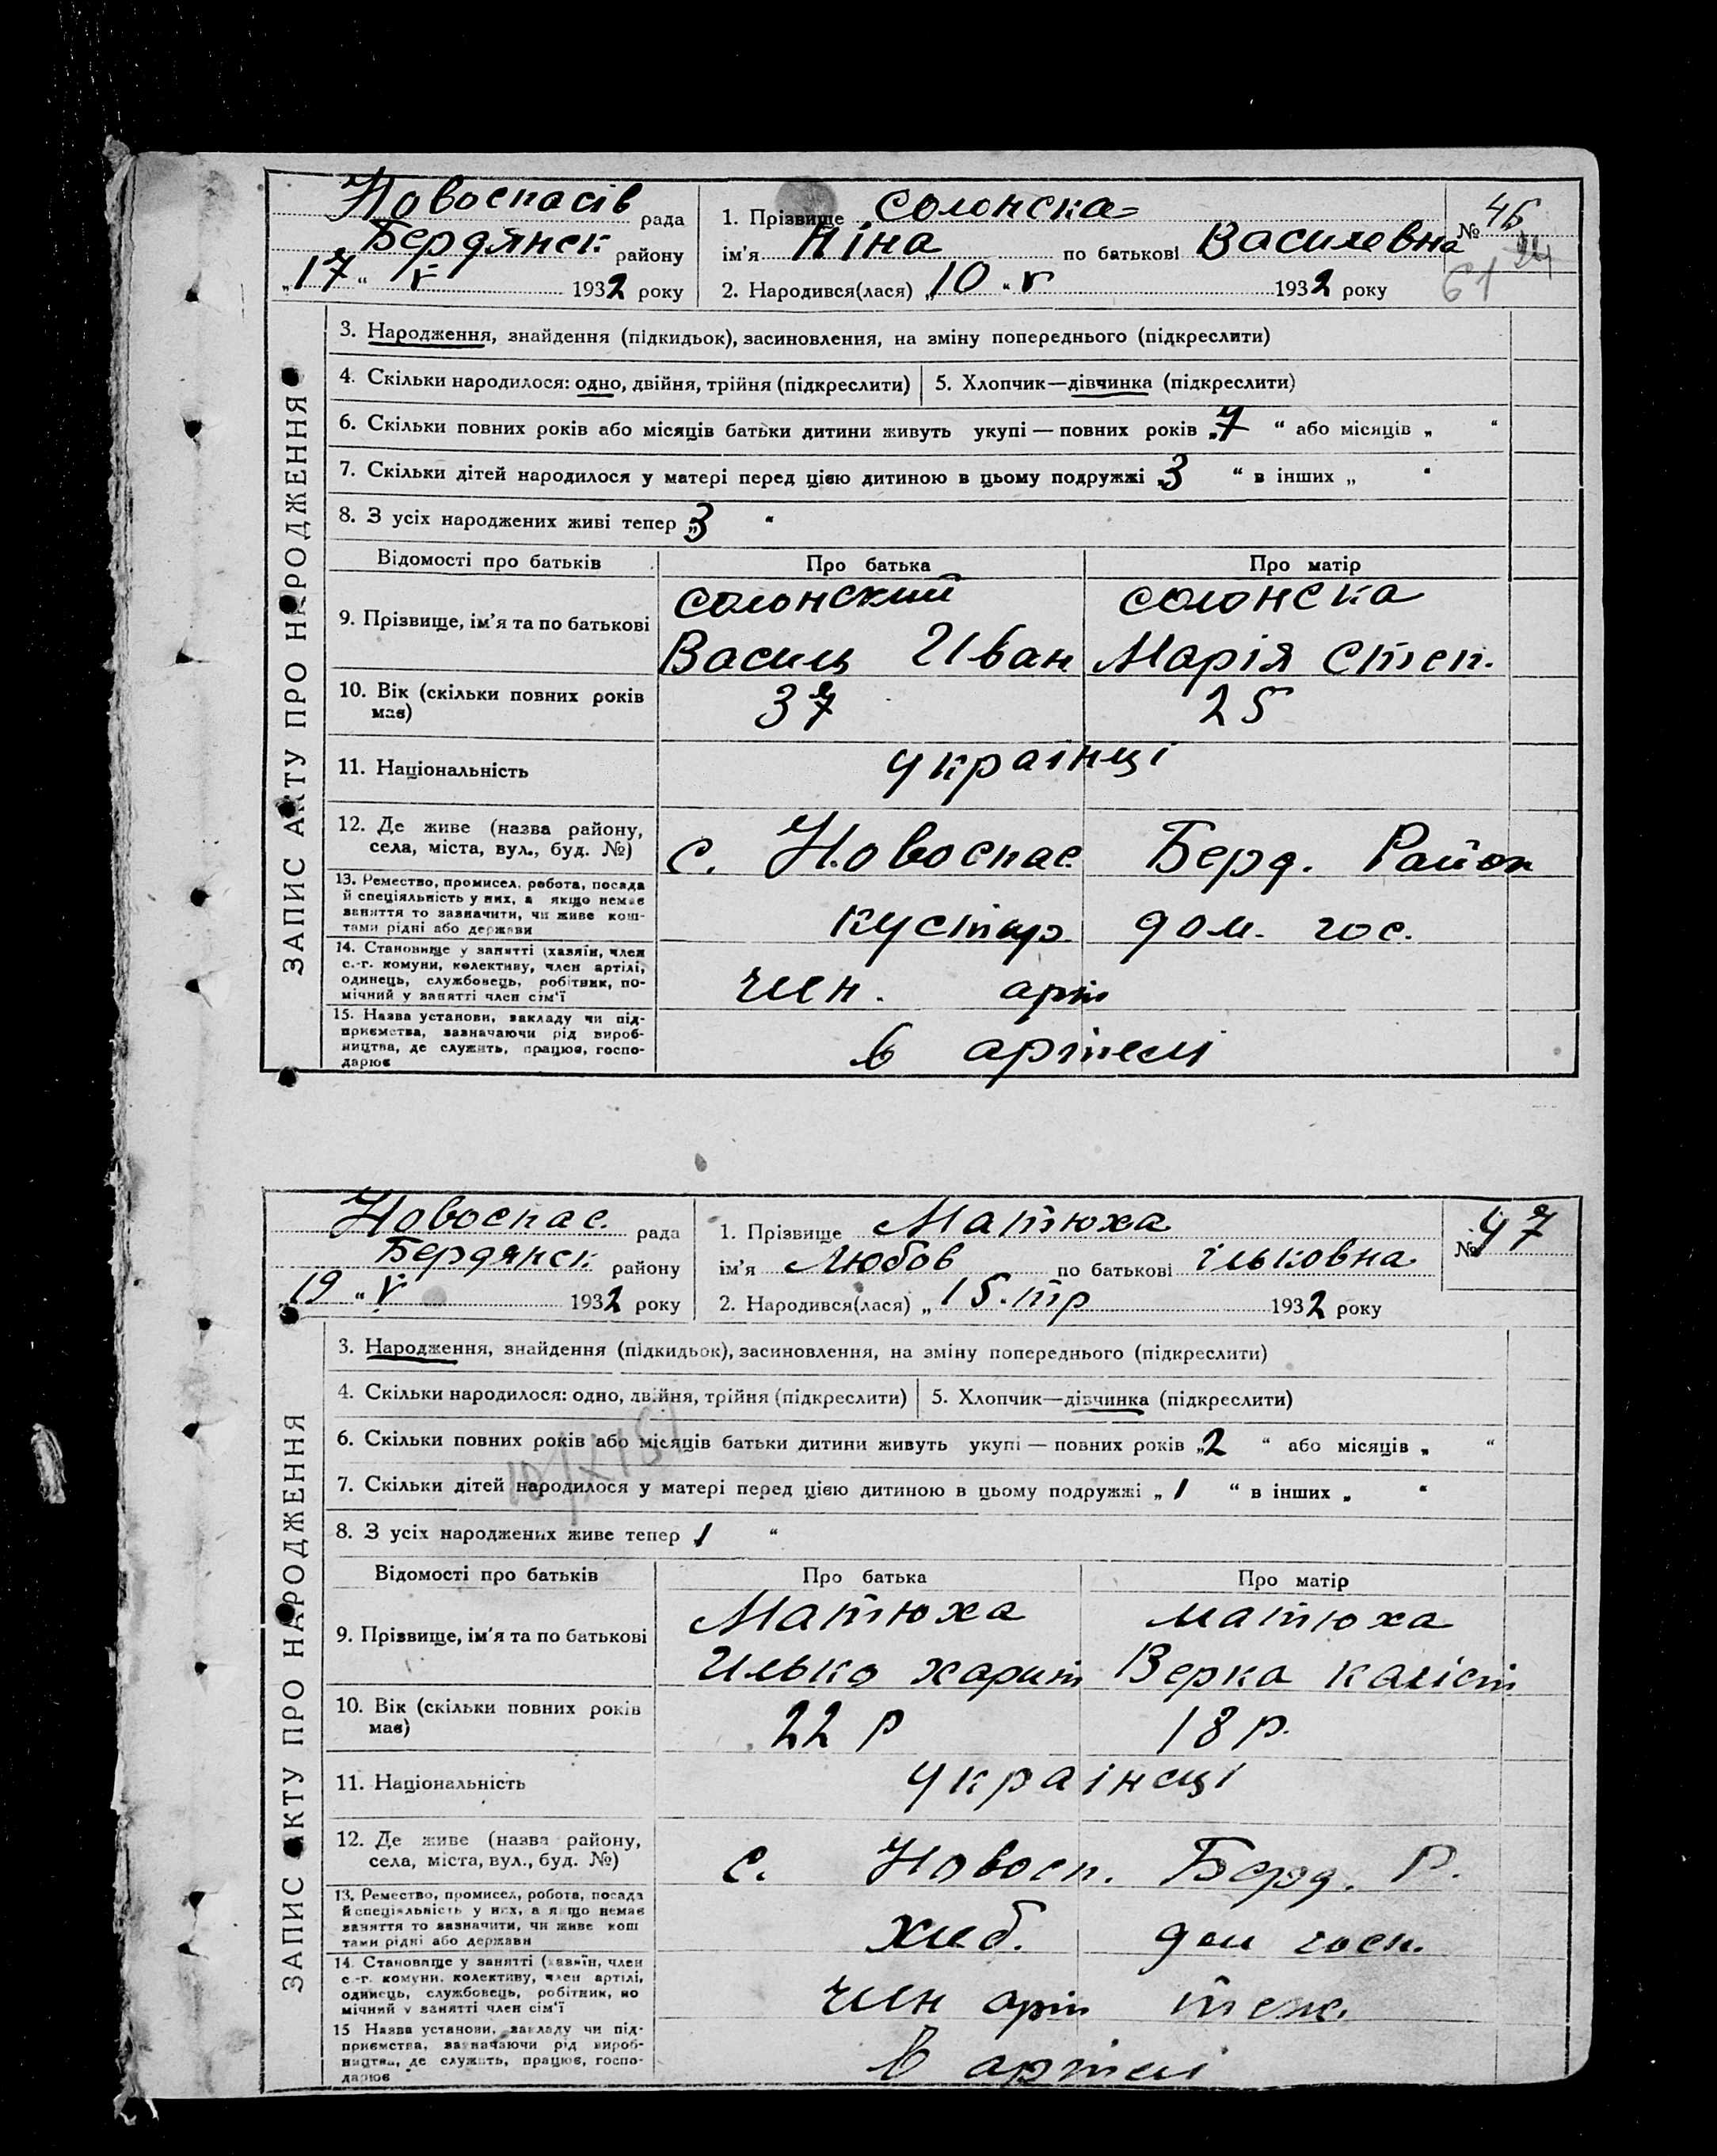 Новоспасів рада
Бердянск району
„17“ V 1932 року
1. Прізвище Солонска
ім'я Ніна по батькові Василевна
2. Народився(лася) „10“ V 1932 року
№ 46
61 24
ЗАПИС АКТУ ПРО НАРОДЖЕННЯ
3. Народження, знайдення (підкидьок), засиновлення, на зміну попереднього (підкреслити)
4. Скільки народилося: одно, двійня, трійня (підкреслити) 5. Хлопчик—дівчинка (підкреслити)
6. Скільки повних років або місяців батьки дитини живуть укупі — повних років „7“ або місяців „ “
7. Скільки дітей народилося у матері перед цією дитиною в цьому подружжі „3“ в інших „ “
8. З усіх народжених живі тепер „3“
Відомості про батьків Про батька Про матір
9. Прізвище, ім'я та по батькові
Солонский Солонска
Василь Иван Марія Степ.
10. Вік (скільки повних років
має) 37 25
11. Національність українці
12. Де живе (назва району,
села, міста, вул., буд. №) с. Новоспас. Берд. Район
13. Ремество, промисел, робота, посада
й спеціяльність у них, а якщо немає
заняття то зазначити, чи живе кош-
тами рідні або держави
кустар дом. гос.
14. Становище у занятті (хазяїн, член
с.-г. комуни, колективу, член артілі,
одинець, службовець, робітник, по-
мічний у занятті член сім'ї
член. арт
15. Назва установи, закладу чи під-
приємства, зазначаючи рід вироб-
ництва, де служить, працює, госпо-
дарює
в артелі
Новоспас. рада
Бердянск району
„19“ V 1932 року
1. Прізвище Матюха
ім'я Любов по батькові ільковна
2. Народився(лася) „15. тр 1932 року
№ 47
ЗАПИС АКТУ ПРО НАРОДЖЕННЯ
3. Народження, знайдення (підкидьок), засиновлення, на зміну попереднього (підкреслити)
4. Скільки народилося: одно, двійня, трійня (підкреслити) 5. Хлопчик—дівчинка (підкреслити)
6. Скільки повних років або місяців батьки дитини живуть укупі — повних років „2“ або місяців „ “
7. Скільки дітей народилося у матері перед цією дитиною в цьому подружжі „1“ в інших „ “
8. З усіх народжених живе тепер 1 “
Відомості про батьків Про батька Про матір
9. Прізвище, ім'я та по батькові
Матюха Матюха
Илько харит Верка каліст
10. Вік (скільки повних років
має) 22 р 18 р.
11. Національність українсці
12. Де живе (назва району,
села, міста, вул., буд. №) с. Новосп. Берд. Р.
13. Ремество, промисел, робота, посада
й спеціяльність у них, а якщо немає
заняття то зазначити, чи живе кош
тами рідні або держави
хліб. дом госп.
14. Становище у занятті (хазяїн, член
с.-г. комуни, колективу, член артілі,
одинець, службовець, робітник, по
мічний у занятті член сім'ї
член арт теж.
15 Назва установи, закладу чи під-
приємства, зазначаючи рід вироб-
ництва, де служить, працює, госпо-
дарює
в артелі